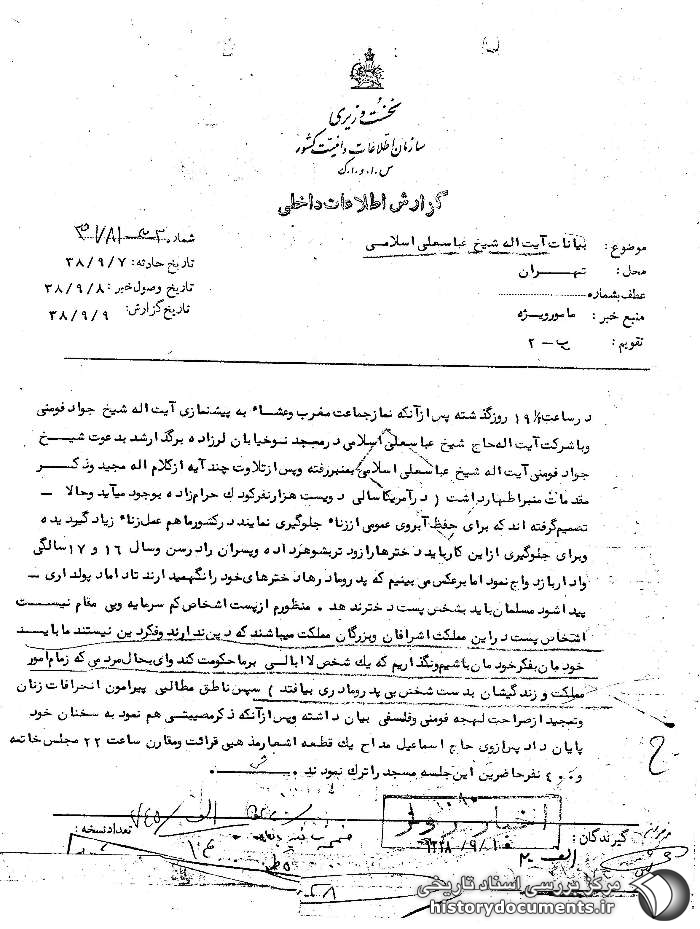 نخست وزیری
سازمان اطلاعات و امنیت کشور
س.ا.و.ا.ک
گزارش اطلاعات داخلی
موضوع : بیانات آیت اله شیخ عباسعلی اسلامی
محل : تهران
عطف بشماره
منبع خبر : مامور ویژه
تقویم : ب - ۲
شماره
تاریخ حادثه : ۳۸/۹/۷
تاریخ وصول خبر : ۳۸/۹/۸
تاریخ گزارش : ۳۸/۹/۹
در ساعت ۱۹½ روز گذشته پس از آنکه نماز جماعت مغرب وعشاء به پیشنمازی آیت اله شیخ جواد فومنی
وبا شرکت آیت اله حاج شیخ عباسعلی اسلامی در مسجد نو خیابان لرزاده برگذار شد بدعوت شیخ
جواد فومنی آیت اله شیخ عباسعلی اسلامی بمنبر رفته وپس از تلاوت چند آیه از کلام اله مجید وذکر
مقدمات منبر اظهار داشت ( در آمریکا سالی دویست هزار نفر کودک حرام زاده بوجود میآید وحالا –
تصمیم گرفته اند که برای حفظ آبروی عمومی از زناء جلوگیری نمایند در کشور ما هم عمل زناء زیاد گردیده
وبرای جلوگیری از این کار باید دخترها را زود تر بشوهر داده وپسران را در سن وسال ۱۶ و ۱۷ سالگی
وادار بازدواج نمود اما برعکس می بینیم که پدر ومادرها دخترهای خود را نگهمیدارند تا داماد پولداری –
پیدا شود مسلمان باید بشخص پست دختر ندهد . منظورم از پست اشخاص کم سرمایه وبی مقام نیست
اشخاص پست در این مملکت اشرافان وبزرگان مملکت میباشند که دین ندارند وفکر دین نیستند ما باید
خودمان بفکر خودمان باشیم ونگذاریم که یک شخص لاابالی برما حکومت کند وای بحال مردمی که زمام امور
مملکت وزندگیشان بدست شخص بی پدر ومادری بیافتد ) سپس ناطق مطالبی پیرامون انحرافات زنان
وتمجید از صراحت لهجه فومنی وفلسفی بیان داشته وپس از آنکه ذکر مصیبتی هم نمود به سخنان خود
پایان داد پس از وی حاج اسماعیل مداح یک قطعه اشعار مذهبی قرائت ومقارن ساعت ۲۲ مجلس خاتمه
و ۴۰۰ نفر حاضرین این جلسه مسجد را ترک نمودند .
گیرندگان :
تعداد نسخه :
اخبار روز
۱۳۳۸/۹/۱۰
مرکز بررسی اسناد تاریخی
historydocuments.ir